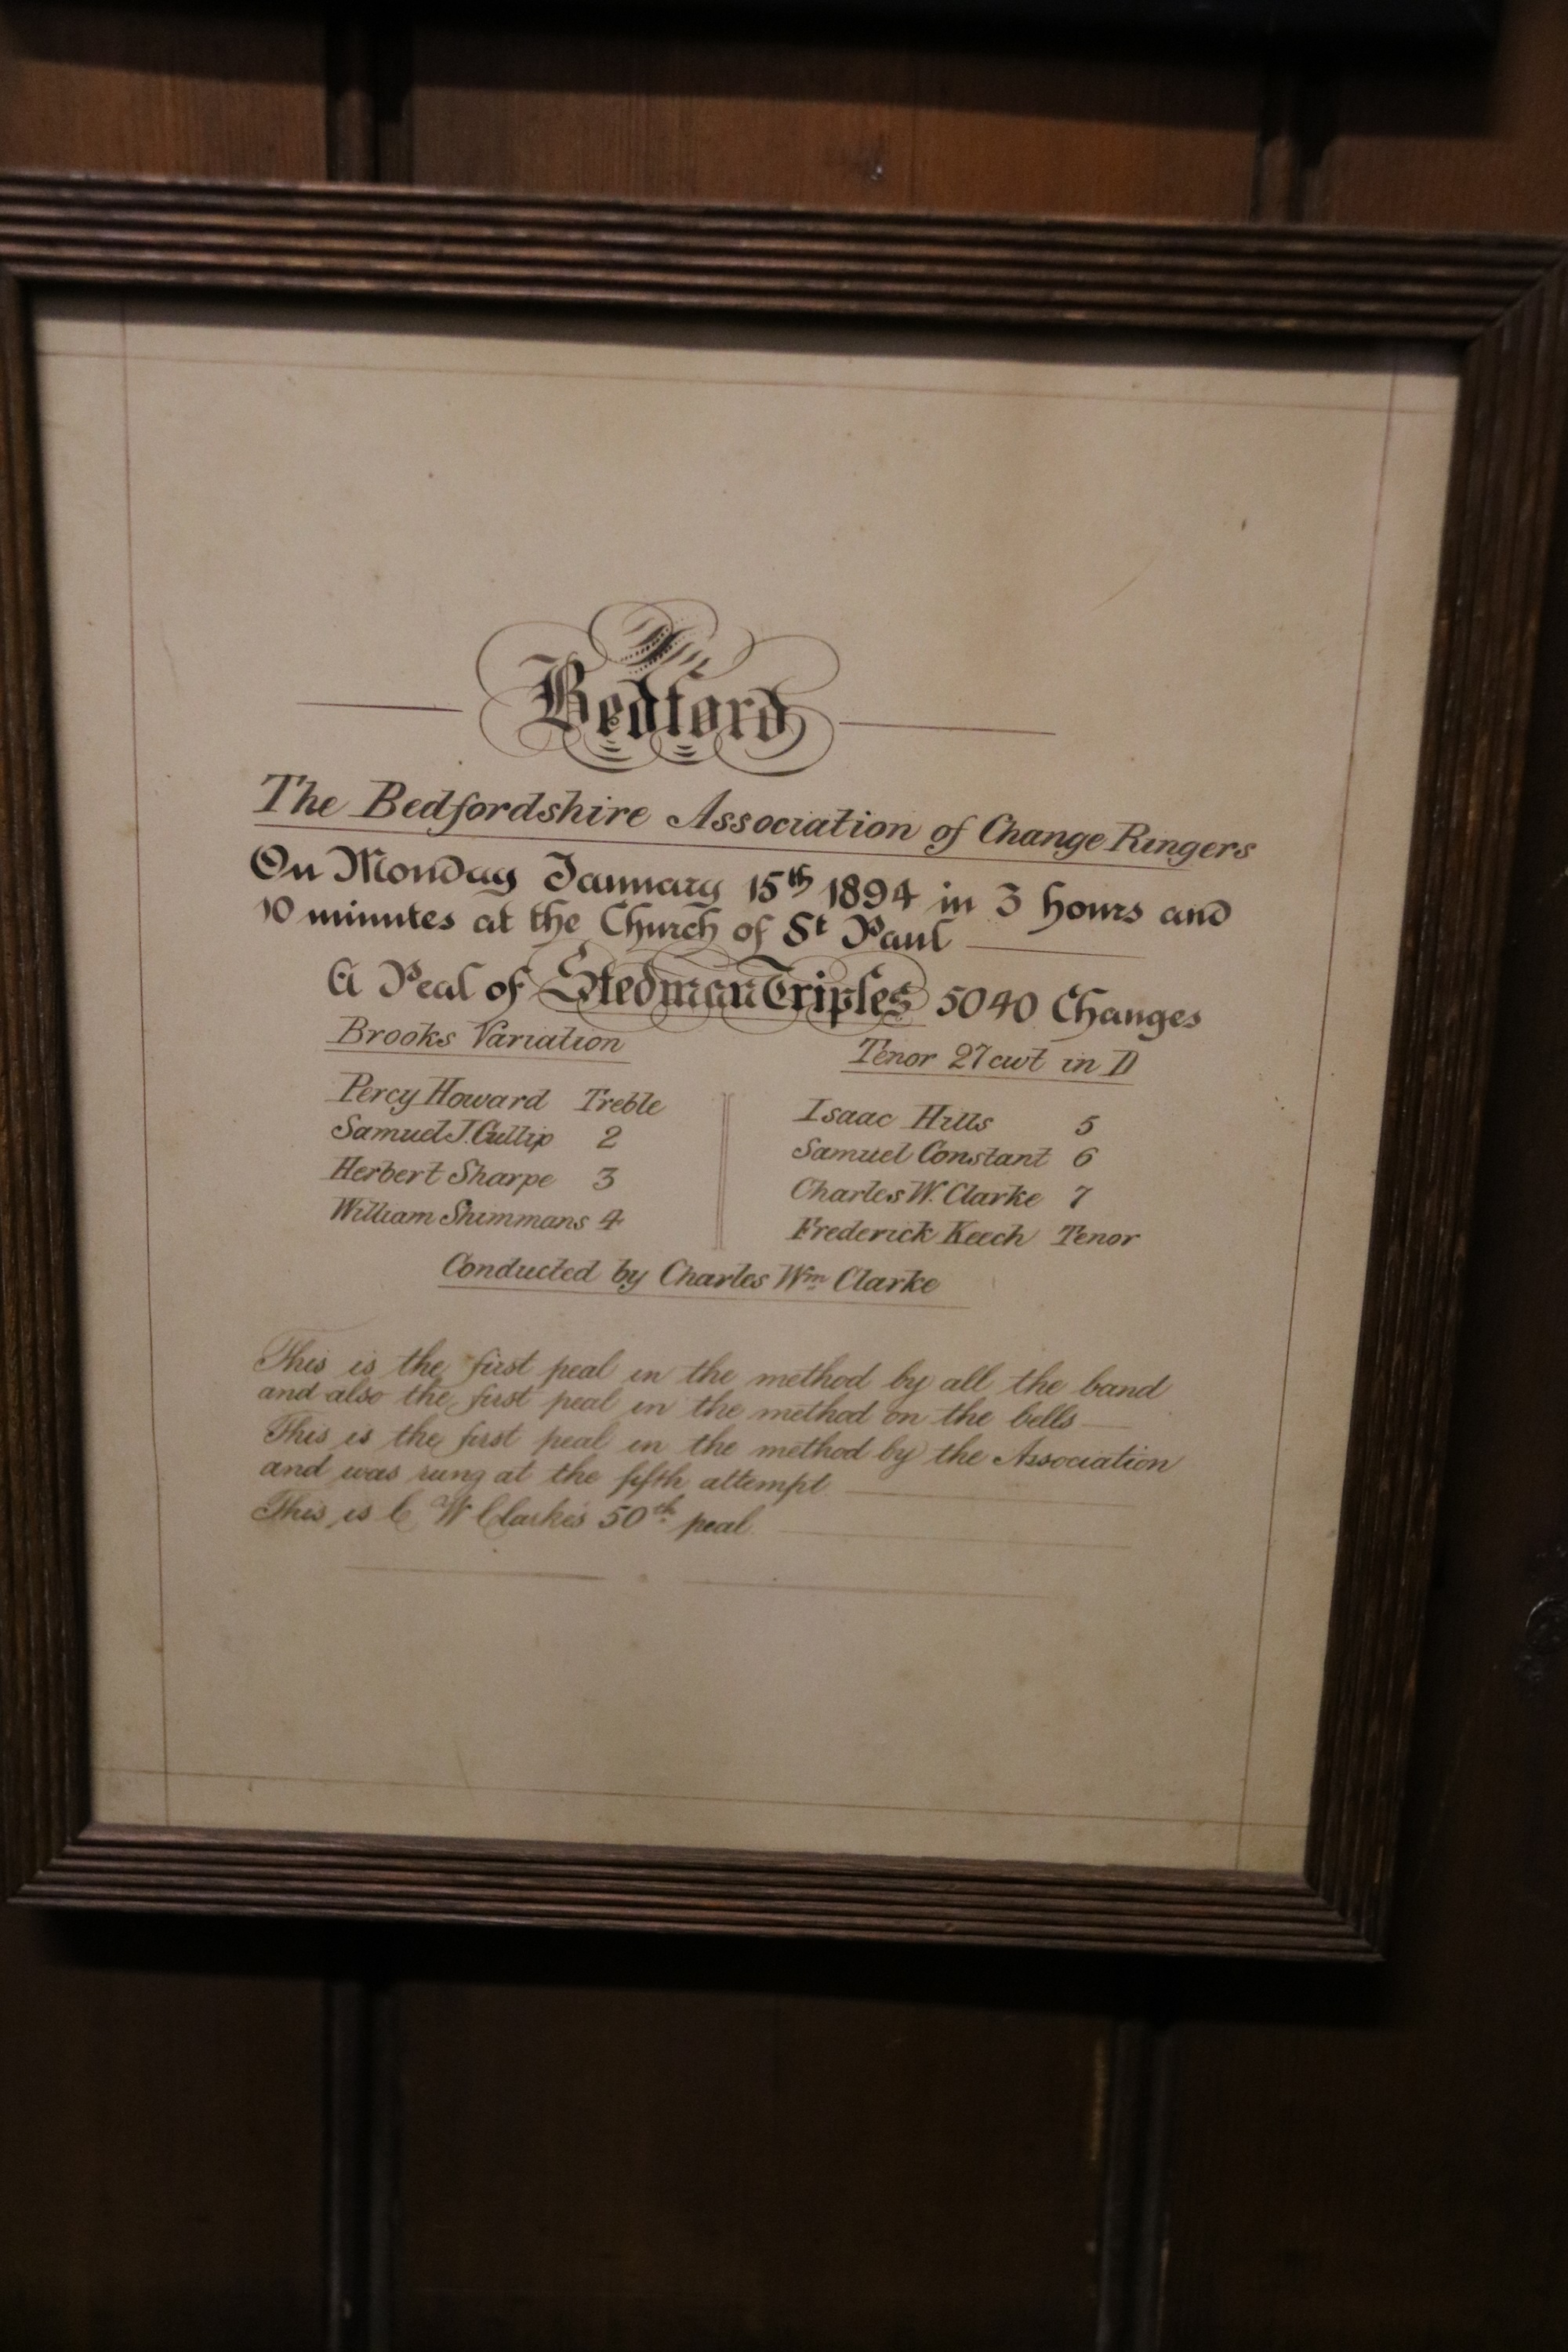 Bedford
The Bedfordshire Association of Change Ringers
On Monday January 15th 1894 in 3 hours and
10 minutes at the Church of St Paul
A Peal of Stedman Triples 5040 Changes
Brooks Variation
Tenor 27 cwt in D
Percy Howard Treble
Samuel J. Cullip 2
Herbert Sharpe 3
William Shimmans 4
Isaac Hills 5
Samuel Constant 6
Charles W. Clarke 7
Frederick Keech Tenor
Conducted by Charles Wm Clarke
This is the first peal in the method by all the band
and also the first peal in the method on the bells
This is the first peal in the method by the Association
and was rung at the fifth attempt
This is C W Clarke's 50th peal